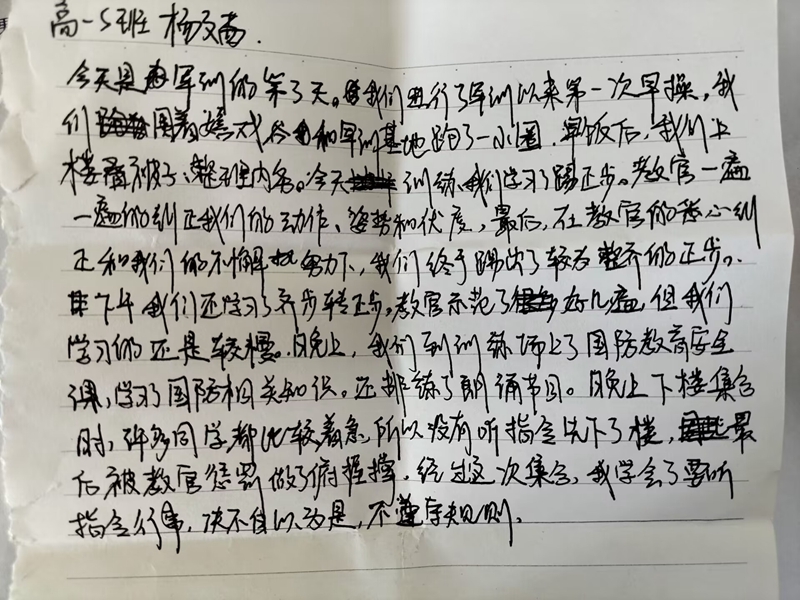 高一5班 杨文
今天是军训的第3天。我们进行了军训以来第一次早操,我
们围着嬉戏谷和军训基地跑了一小圈.早饭后,我们上
楼叠被子、整理内务。今天训练,我们学习了踢正步。教官一遍
一遍的纠正我们的动作、姿势和幅度,最后,在教官的悉心纠
正和我们的不懈努力下,我们终于踢出了较为整齐的正步。
下午我们还学习了齐步转正步。教官示范了好几遍,但我们
学习的还是较糟。晚上,我们到训练场上了国防教育安全
课,学习了国防相关知识。还排练了朗诵节目。晚上下楼集合
时,许多同学都比较着急,所以没有听指令先下了楼,最
后被教官惩罚做了俯卧撑.经过这次集合,我学会了要听
指令行事,决不自以为是,不遵守规则.